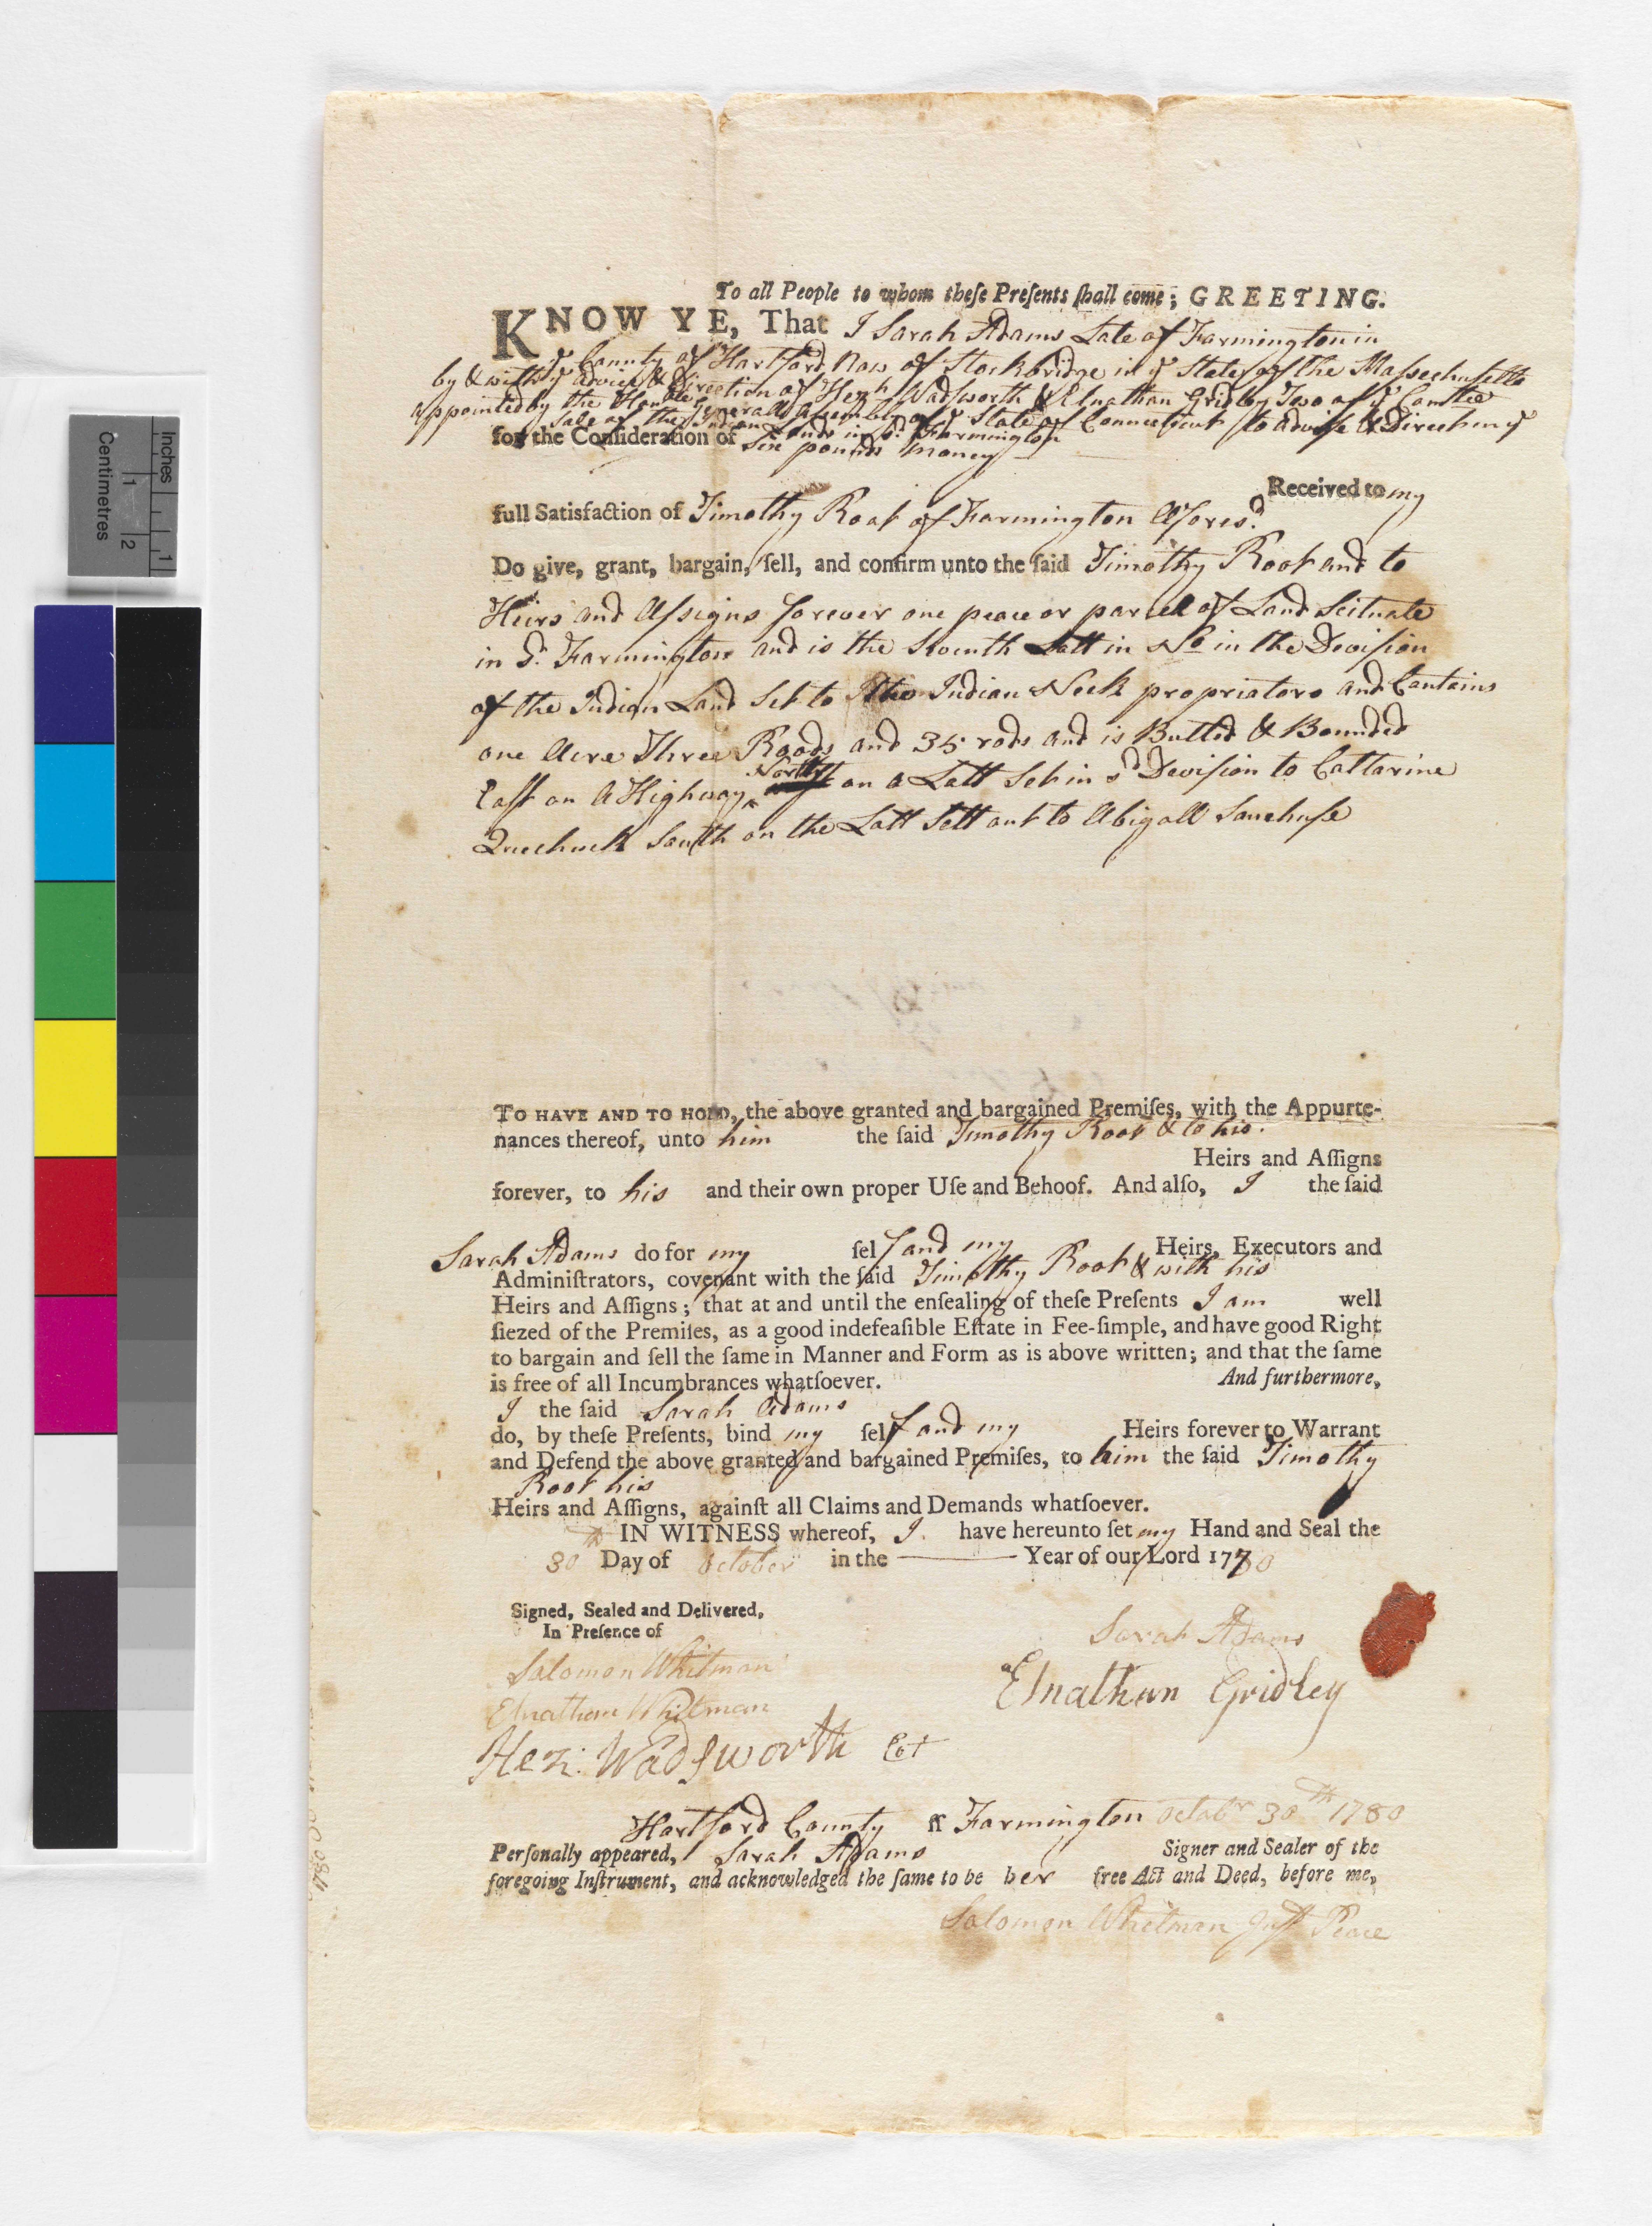 Inches
1
Centimetres
1
2
To all People to whom theſe Preſents ſhall come; GREETING.
KNOW YE, That I Sarah Adams Late of Farmington in
yᵉ County of Hartford Now of Stockbridge in yᵉ State of the Massechusetts
by & with yᵉ advice & Direction of Hezh Wadsworth & Elnathan Gridley Two of yᵉ Comtee
appointed by the Honble Generall Assembly of yᵉ State of Connecticut to advise & Direct in yᵉ
Sale of the Indian Lands in sᵈ Farmington
for the Conſideration of Six pounds money
Received to my
full Satisfaction of Timothy Root of Farmington Aforesᵈ
Do give, grant, bargain, ſell, and confirm unto the ſaid Timothy Root and to
Heirs and Aſsigns forever one peace or parcel of Land Scituate
in Sᵈ Farmington and is the Seventh Lott in No in the Deviſion
of the Indian Land Set to the Indian Neck propriators and Contains
one Acre Three Roods and 35 rods and is Butted & Bounded
East on A Highway North on a Lott Set in sᵈ Deviſion to Cattarine
Quechuck South on the Lott Sett out to Abigall
TO HAVE AND TO HOLD, the above granted and bargained Premiſes, with the Appurte-
nances thereof, unto him the ſaid Timothy Root & to his
Heirs and Aſſigns
forever, to his and their own proper Uſe and Behoof. And alſo, I the ſaid
Sarah Adams do for my ſelf and my Heirs, Executors and
Adminiſtrators, covenant with the ſaid Timothy Root & with his
Heirs and Aſſigns; that at and until the enſealing of theſe Preſents I am well
ſiezed of the Premiſes, as a good indefeaſible Eſtate in Fee-ſimple, and have good Right
to bargain and ſell the ſame in Manner and Form as is above written; and that the ſame
is free of all Incumbrances whatſoever. And furthermore,
I the ſaid Sarah Adams
do, by theſe Preſents, bind my ſelf and my Heirs forever to Warrant
and Defend the above granted and bargained Premiſes, to him the ſaid Timothy
Root his
Heirs and Aſſigns, againſt all Claims and Demands whatſoever.
IN WITNESS whereof, I have hereunto ſet my Hand and Seal the
30th Day of October in the Year of our Lord 1780
Signed, Sealed and Delivered,
In Preſence of
Sarah Adams
Salomon Whitman
Elnathan Gridley
Elnathan Whitman
Hez: Wadsworth
Hartford County ss Farmington Octobr 30th 1780
Perſonally appeared, Sarah Adams Signer and Sealer of the
foregoing Inſtrument, and acknowledged the ſame to be her free Act and Deed, before me,
Salomon Whitman Just Peace